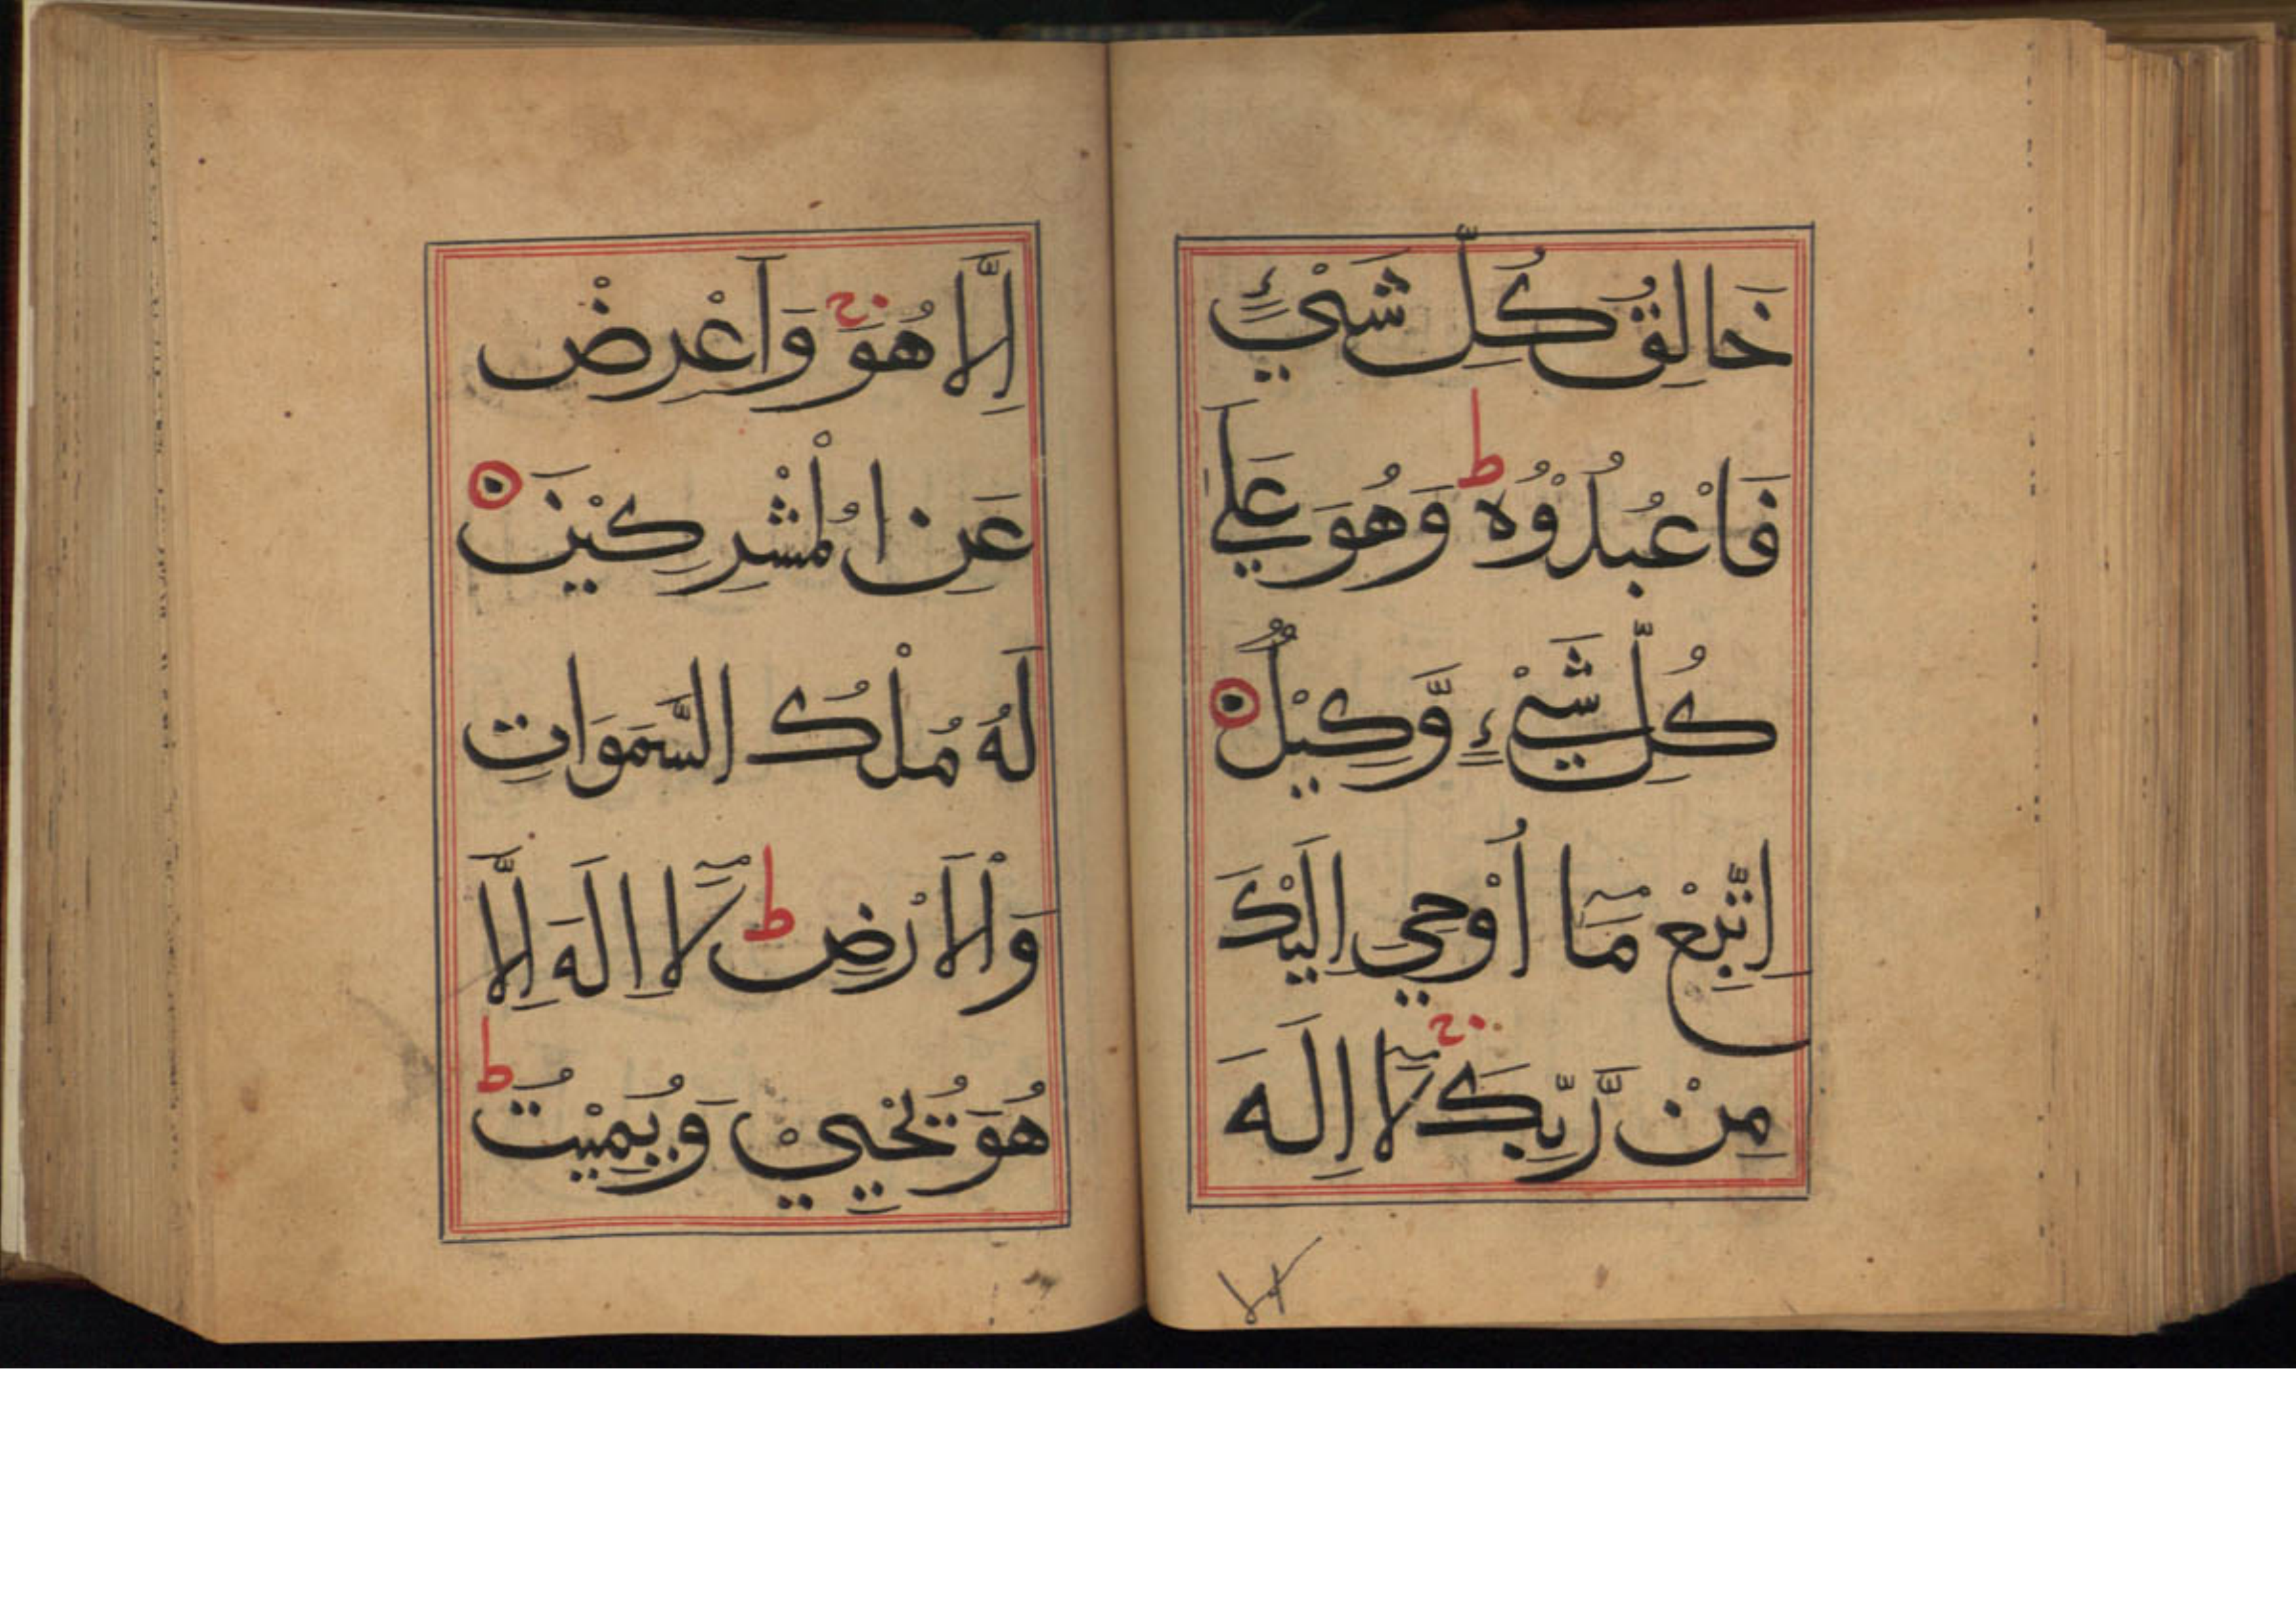 خَالِقُ كُلِّ شَيْءٍ
فَاعْبُدُوْهُ ط وَهُوَ عَلَي
كُلِّ شَيْءٍ وَّكِيْلٌ
اِتَّبِعْ مَآ اُوْحِيَ اِلَيْكَ
مِنْ رَّبِّكَ ج لَآ اِلٰهَ
اِلَّا هُوَ ج وَاَعْرِضْ
عَنِ الْمُشْرِكِيْنَ
لَهُ مُلْكُ السَّمَوَاتِ
وَالْاَرْضِ ط لَآ اِلَهَ اِلَّا
هُوَ يُحْيِيْ وَيُمِيْتُ ط